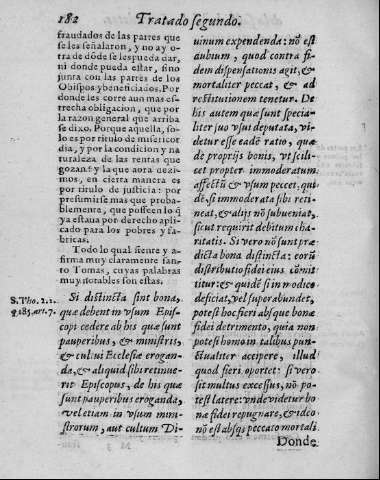 182 Tratado segundo.
fraudados de las partes que
se les señalaron, y no ay o-
tra de dõde se les pueda dar,
ni donde pueda estar, sino
junta con las partes de los
Obispos y beneficiados. Por
donde les corre aun mas es-
trecha obligacion, que por
la razon general que arriba
se dixo. Porque aquella, so-
lo es por titulo de misericor
dia, y por la condicion y na
turaleza de las rentas que
gozan: y la que aora dezi-
mos, en cierta manera es
por titulo de justicia: por
presumirse mas que proba-
blemente, que posseen lo q̃
ya estaua por derecho apli-
cado para los pobres y fa-
bricas.
Todo lo qual siente y a-
firma muy claramente san-
to Tomas, cuyas palabras
muy notables son estas.
S. Tho. 2.2.
q. 185. art. 7.
Si distincta sint bona,
quæ debent in vsum Epis-
copi cedere ab his quæ sunt
pauperibus, & ministris,
& cultui Ecclesiæ erogan-
da, & aliquid sibi retinue-
rit Episcopus, de his quæ
sunt pauperibus eroganda,
vel etiam in vsum mini-
strorum, aut cultum Di-
uinum expendenda: nõ est
dubium, quod contra fi-
dem dispensationis agit, &
mortaliter peccat, & ad
restitutionem tenetur. De
his autem quæ sunt specia-
liter suo vsui deputata, vi-
detur esse eadẽ ratio, quæ
de proprijs bonis, vt scili-
cet propter immoderatum
affectũ & vsum peccet, qui
dẽ, si immoderata sibi reti-
neat, & alijs nõ subueniat,
sicut requirit debitum cha-
ritatis. Si vero nõ sunt præ
dicta bona distincta: eorũ
distributio fidei eius cõmit
titur: & quidẽ si in modico
deficiat, vel superabundet,
potest hoc fieri absque bonæ
fidei detrimento, quia non
potest homo in talibus pun-
ctualiter accipere, illud
quod fieri oportet: si vero
sit multus excessus, nõ po-
test latere: vnde videtur bo
næ fidei repugnare, & ideo
nõ est absq; peccato mortali.
Donde